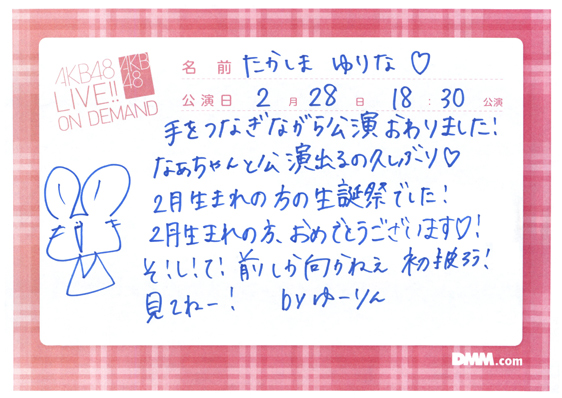 AKB48
LIVE!!
ON DEMAND
AKB
48
名前 たかしま ゆりな ♡
公演日 2月28日 18:30公演
手をつなぎながら公演おわりました!
なぁちゃんと公演出るの久しぶり♡
2月生まれの方の生誕祭でした!
2月生まれの方、おめでとうございます♡!
そ!し!て! 前しか向かねぇ 初披ろう!
見てねー! byゆーりん
DMM.com